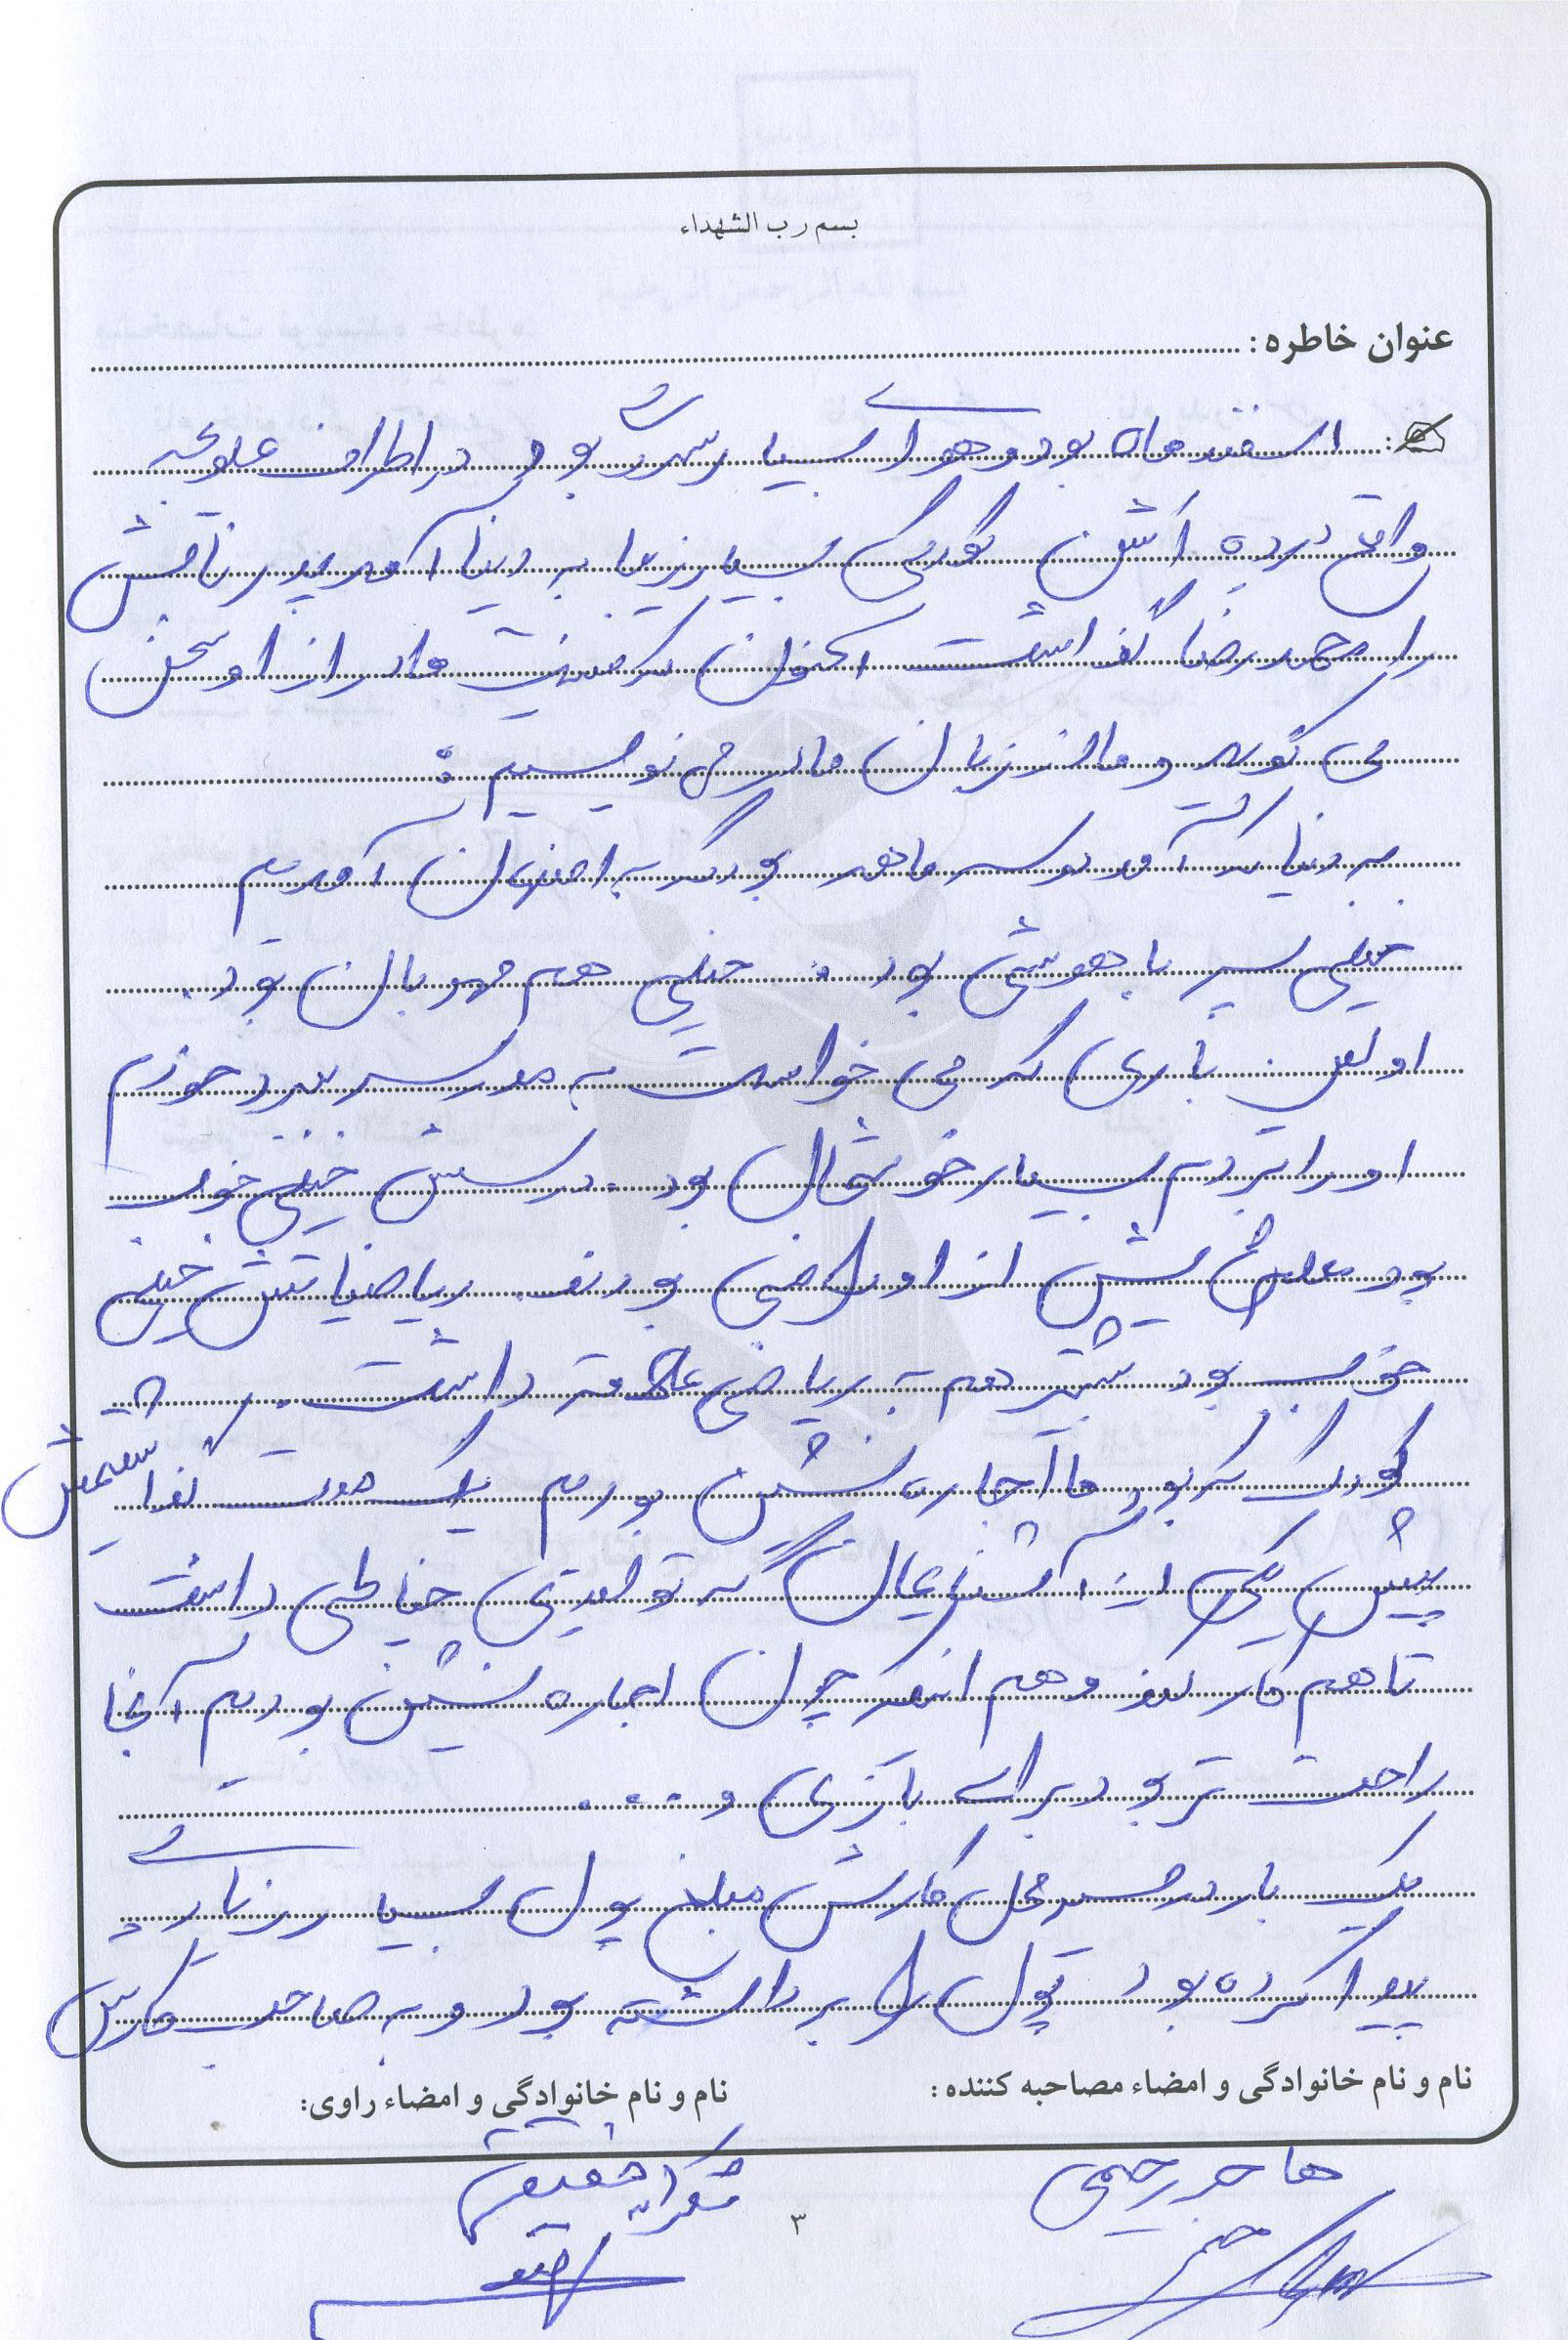 بسم رب الشهداء
عنوان خاطره :
اسفند ماه بود و هوا بسیار سرد بود در اطراف علویجه
واقع در ده کودکی بسیار زیبا به دنیا آمد پدر نامش
را محمدرضا گذاشت اکنون سرگذشت مادر از او سخن
می گوید و ما از زبان مادر می نویسیم :
به دنیا که آمد سه ماهه بود که به اصفهان آمدیم
خیلی پسر باهوشی بود . خیلی هم مهربان بود .
اولین باری که می خواست به مدرسه برود خودم
او را بردم بسیار خوشحال بود . درسش خیلی خوب
بود معلمانش از او راضی بودند . ریاضیاتش خیلی
خوب بود بیشتر هم به ریاضی علاقه داشت .
کودک که بود ما اجاره نشین بودیم یک مدت گذاشتیمش
پیش یکی از آشنایمان که تولیدی خیاطی داشت
تا هم کار کند و هم اینکه چون اجاره نشین بودیم آنجا
راحت تر بود برای بازی و ....
یک بار در مسیر محل کارش مبلغ پول بسیار زیادی
پیدا کرده بود پول را برداشته بود و به صاحب کارش
نام و نام خانوادگی و امضاء مصاحبه کننده :
نام و نام خانوادگی و امضاء راوی:
هاجر رحیمی
حقیقی
۳